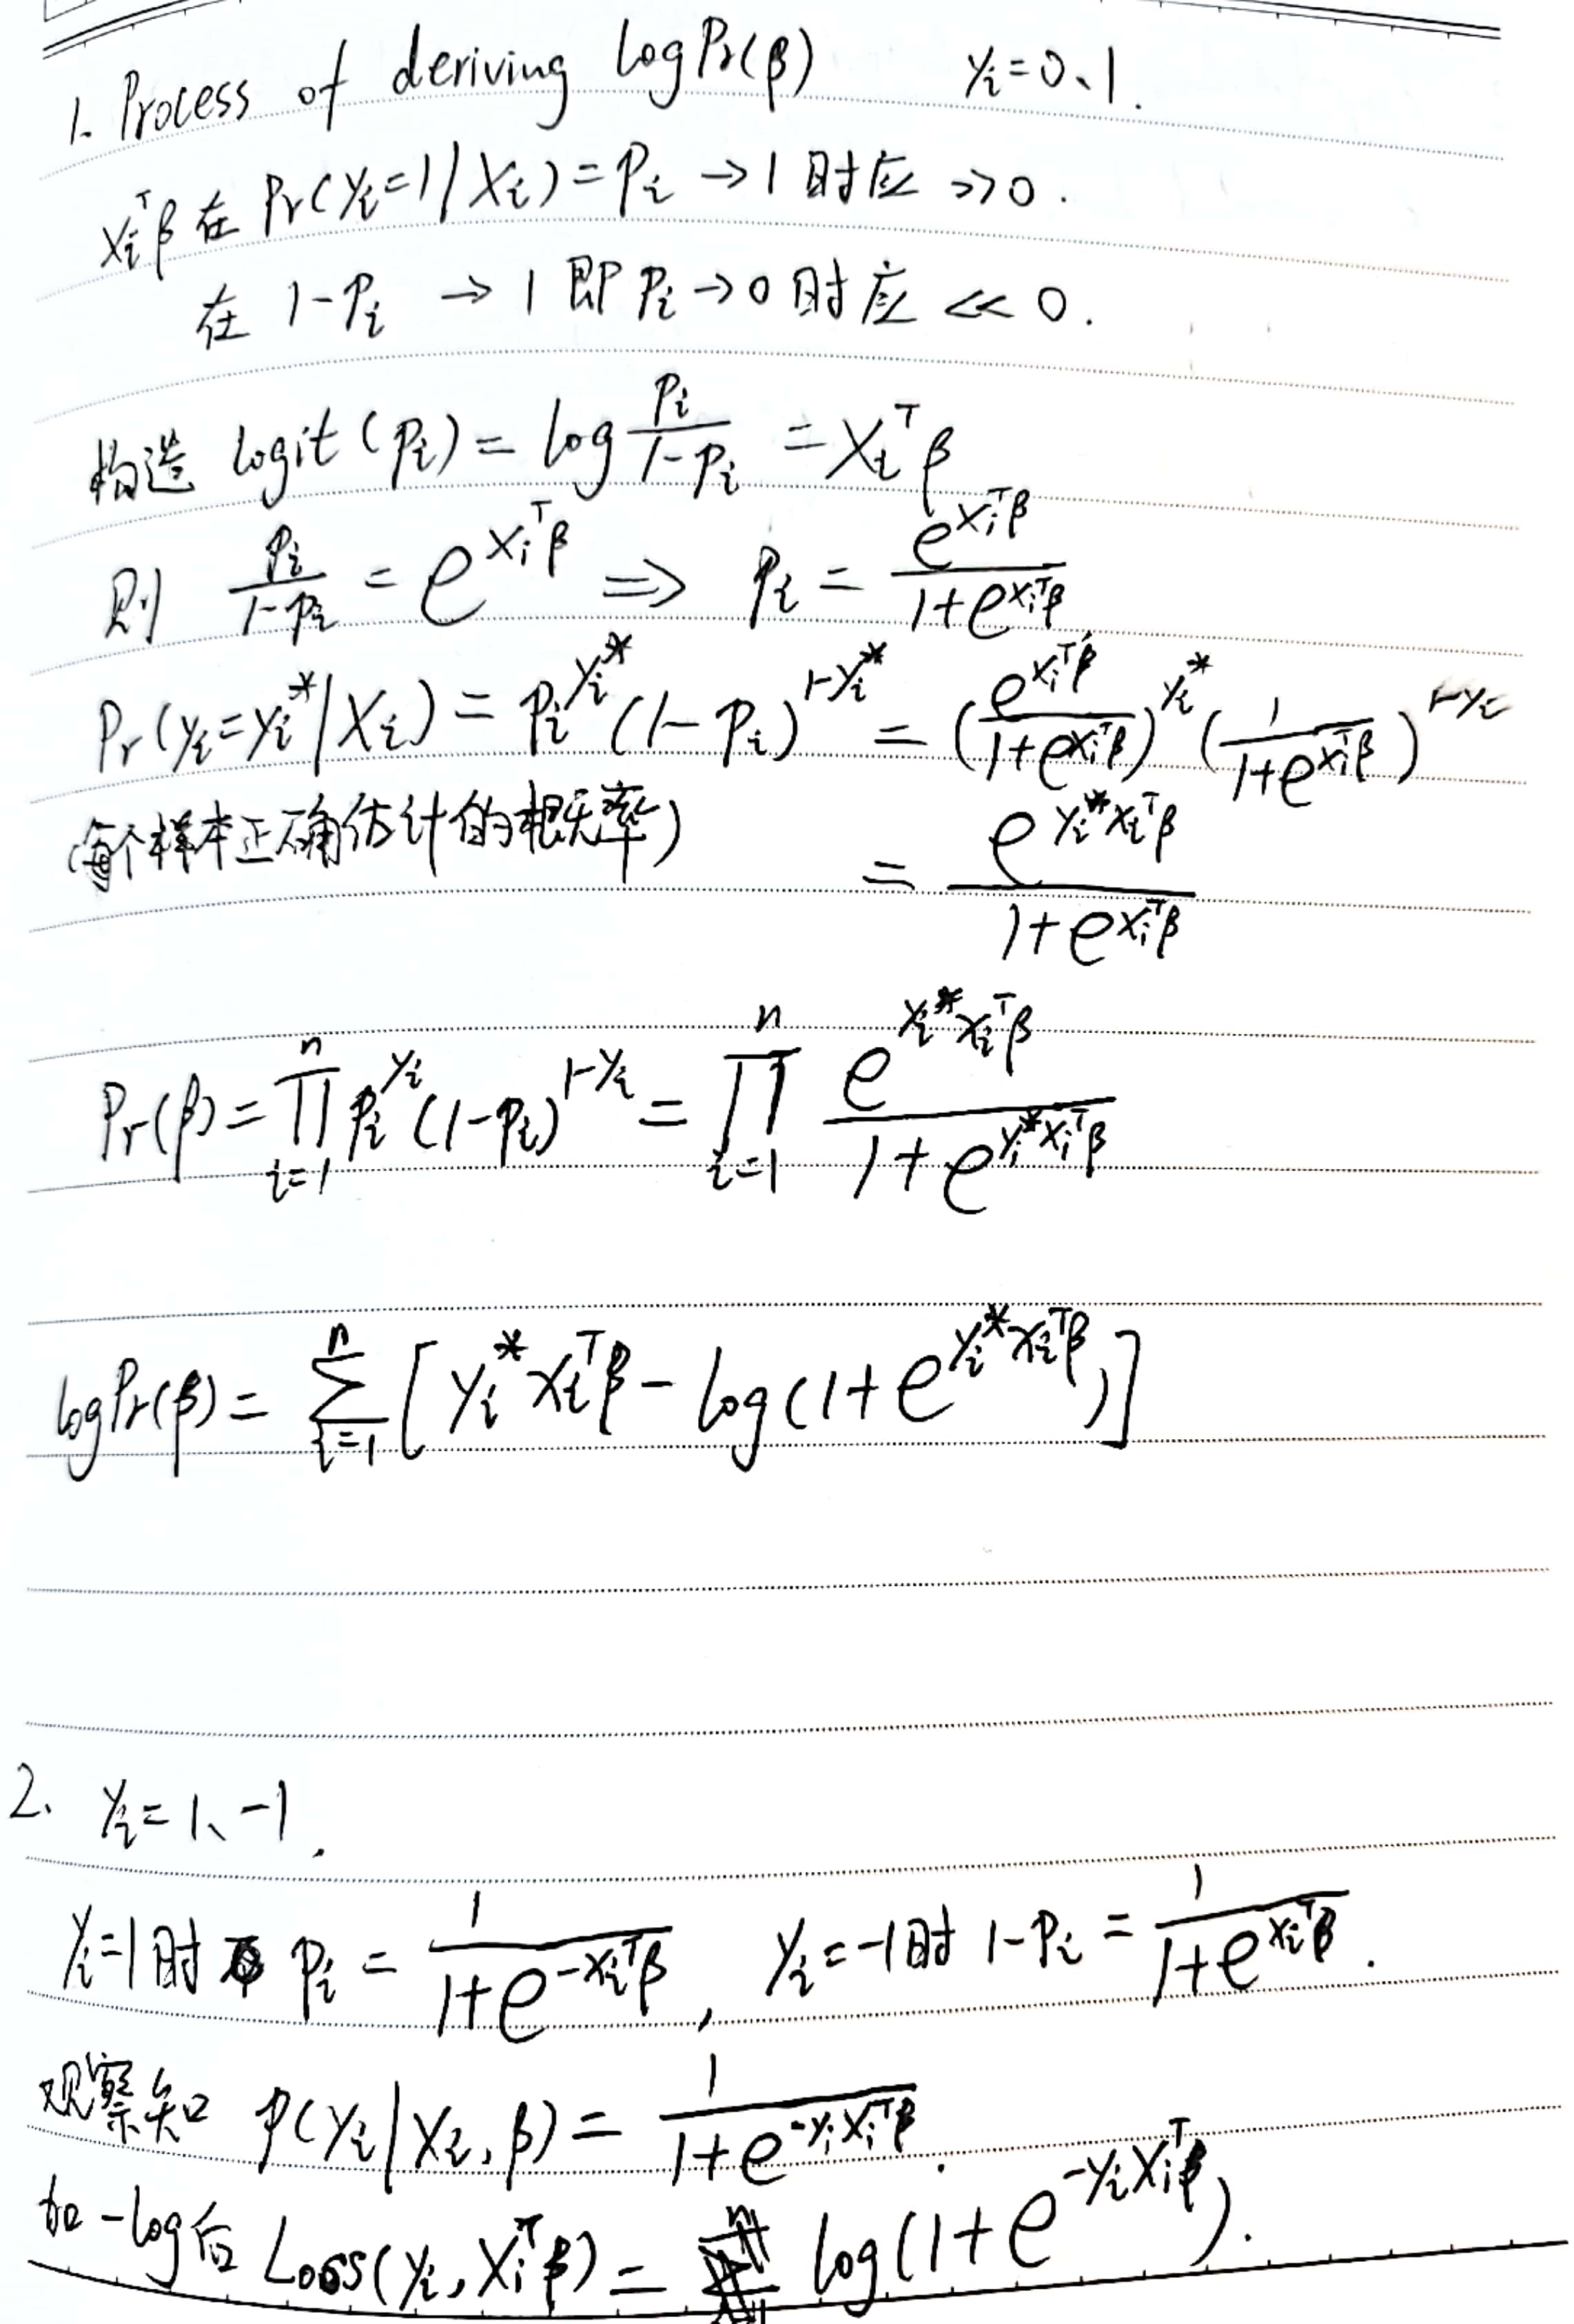 1. Process of deriving logPr(β)   yi=0、1.
xiᵀβ 在 Pr(yi=1|Xi)=Pi →1 时应 >>0.
在 1-Pi →1 即 Pi→0 时应 << 0.
构造 logit(Pi) = log Pi/(1-Pi) = Xiᵀβ
则 Pi/(1-Pi) = e^(Xiᵀβ) ⇒ Pi = e^(Xiᵀβ)/(1+e^(Xiᵀβ))
Pr(yi=yi*|Xi) = Pi^(yi*) (1-Pi)^(1-yi*) = (e^(Xiᵀβ)/(1+e^(Xiᵀβ)))^(yi*) (1/(1+e^(Xiᵀβ)))^(1-yi)
(每个样本正确估计的概率)   = e^(yi*xiᵀβ)/(1+e^(Xiᵀβ))
Pr(β) = ∏_{i=1}^{n} Pi^(yi) (1-Pi)^(1-yi) = ∏_{i=1}^{n} e^(yi*xiᵀβ)/(1+e^(yi*xiᵀβ))
logPr(β) = ∑_{i=1}^{n} [yi*xiᵀβ - log(1+e^(yi*xiᵀβ))]
2. yi=1、-1.
yi=1时 Pi = 1/(1+e^(-xiᵀβ)), yi=-1时 1-Pi = 1/(1+e^(xiᵀβ)).
观察知 P(yi|Xi,β) = 1/(1+e^(-yiXiᵀβ)).
加-log后 Loss(yi,Xiᵀβ) = log(1+e^(-yiXiᵀβ)).